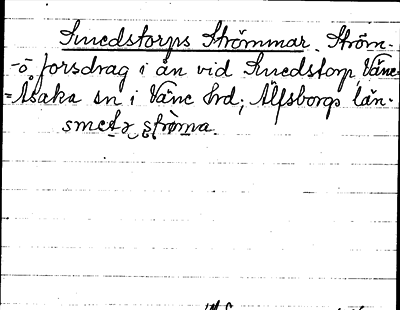 Smedstorps Strömmar. Ström-
-o forsdrag i ån vid Smedstorp Väne-
-Åsaka sn i Väne hrd; Älfsborgs län.
smetɔ stròma.